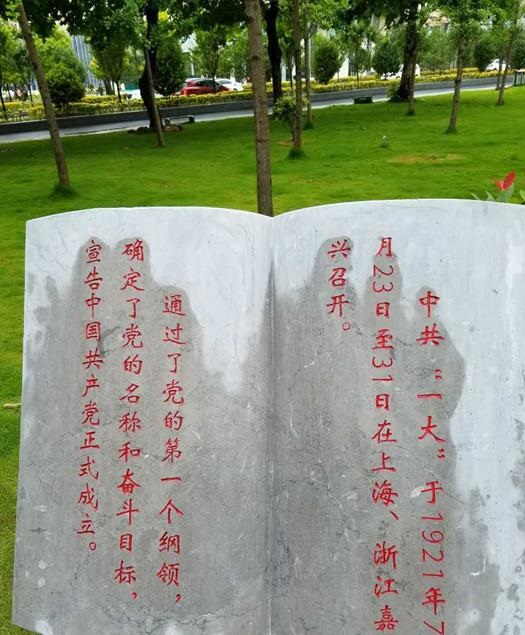 中共“一大”于1921年7
月23日至31日在上海、浙江嘉
兴召开。
通过了党的第一个纲领，
确定了党的名称和奋斗目标，
宣告中国共产党正式成立。